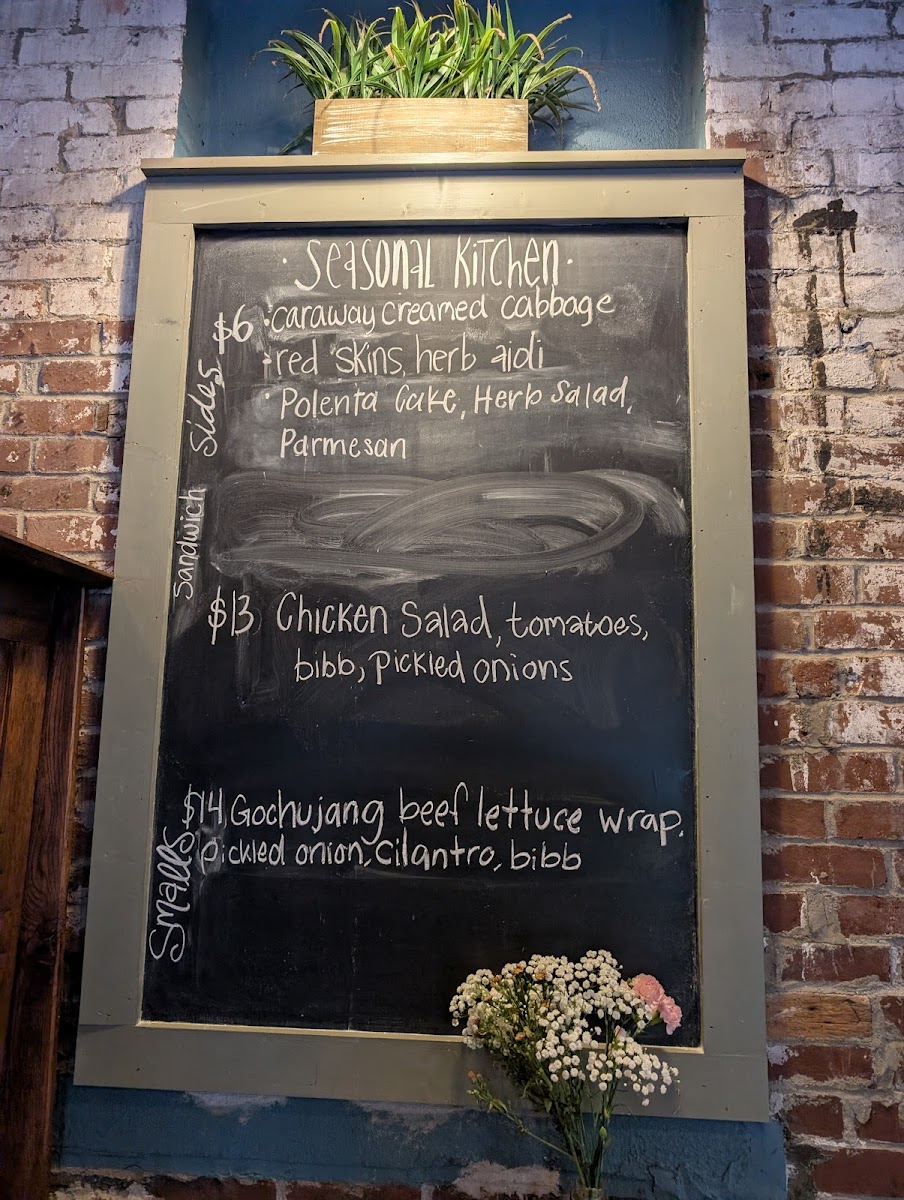 · Seasonal Kitchen ·
Sides
$6 · caraway creamed cabbage
· red skins, herb aioli
· Polenta Cake, Herb Salad,
Parmesan
Sandwich
$13 Chicken Salad, tomatoes,
bibb, pickled onions
Smalls
$14 Gochujang beef lettuce wrap.
pickled onion, cilantro, bibb